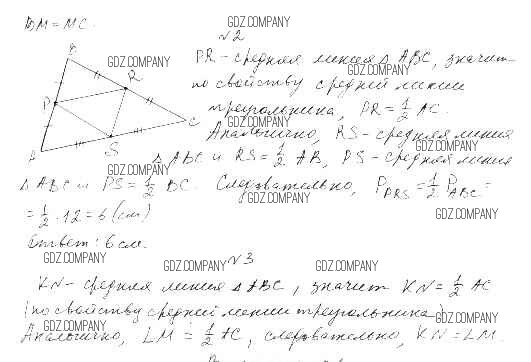 ВМ = МС.
GDZ.COMPANY
№2
B
PR - средняя линия Δ ABC, значит
GDZ.COMPANY
GDZ.COMPANY
R
по свойству средней линии
P
треугольника, PR = 1/2 AC.
GDZ.COMPANY
C
Аналогично, RS - средняя линия
GDZ.COMPANY
A
S
Δ ABC и RS = 1/2 AB, PS - средняя линия
GDZ.COMPANY
Δ ABC и PS = 1/2 BC. Следовательно, P_PRS = 1/2 P_ABC =
GDZ.COMPANY
= 1/2 · 12 = 6 (см)
GDZ.COMPANY
Ответ: 6 см.
GDZ.COMPANY
GDZ.COMPANY
№3
GDZ.COMPANY
KN - средняя линия Δ ABC, значит KN = 1/2 AC
(по свойству средней линии треугольника)
GDZ.COMPANY
GDZ.COMPANY
GDZ.COMPANY
Аналогично, LM = 1/2 AC, следовательно, KN = LM.